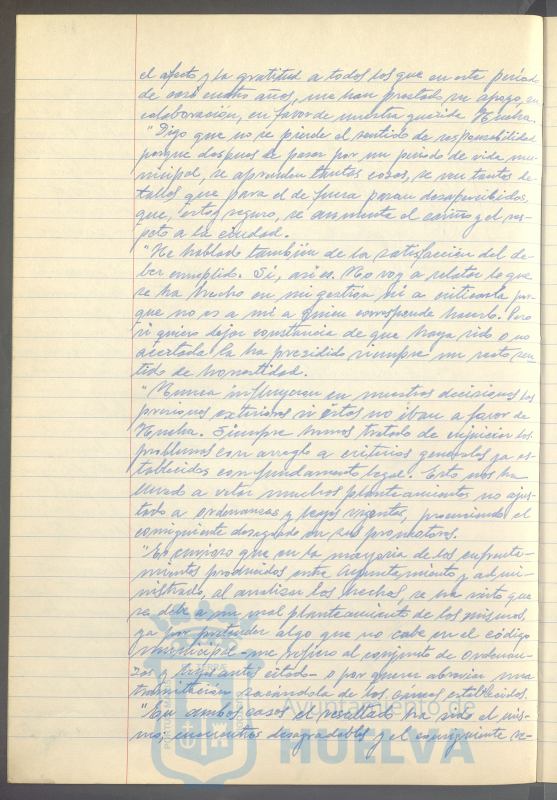 el afecto y la gratitud a todos los que en este period
de casi cuatro años, me han prestado su apoyo, su
colaboración, en favor de nuestra querida Huelva.
"Digo que no se pierde el sentido de responsabilidad
porque despues de pasar por un periodo de vida mu-
nicipal, se aprenden tantas cosas, se ven tantos de-
talles que para el de fuera pasan desapercibidos,
que, estoy seguro, se aumenta el cariño y el res-
peto a la ciudad.
"He hablado también de la satisfacción del de-
ber cumplido. Si, asi es. No voy a relatar lo que
se ha hecho en mi gestión ni a criticarla por-
que no es a mi a quien corresponde hacerlo. Pero
si quiero dejar constancia de que haya sido o no
acertada la ha presidido siempre un recto sen-
tido de honestidad.
"Nunca influyeron en nuestras decisiones las
presiones exteriores si éstas no iban a favor de
Huelva. Siempre hemos tratado de enjuiciar los
problemas con arreglo a criterios generales ya es-
tablecidos con fundamento legal. Esto nos ha
llevado a vetar muchos planteamientos no ajus-
tado a ordenanzas y leyes vigentes, provocando el
consiguiente desagrado en sus promotores.
"Es curioso que en la mayoria de los enfrenta-
mientos producidos entre Ayuntamiento y admi-
nistrado, al analizar los hechos, se ha visto que
se debe a un mal planteamiento de los mismos,
ya por pretender algo que no cabe en el código
municipal -me refiero al conjunto de ordenan-
zas y leyes antes citado- o por querer abreviar una
tramitación sacándola de los cauces establecidos.
"En ambos casos el resultado ha sido el mis-
mo, encuentros desagradables y el consiguiente re-
Ayuntamiento de
HUELVA